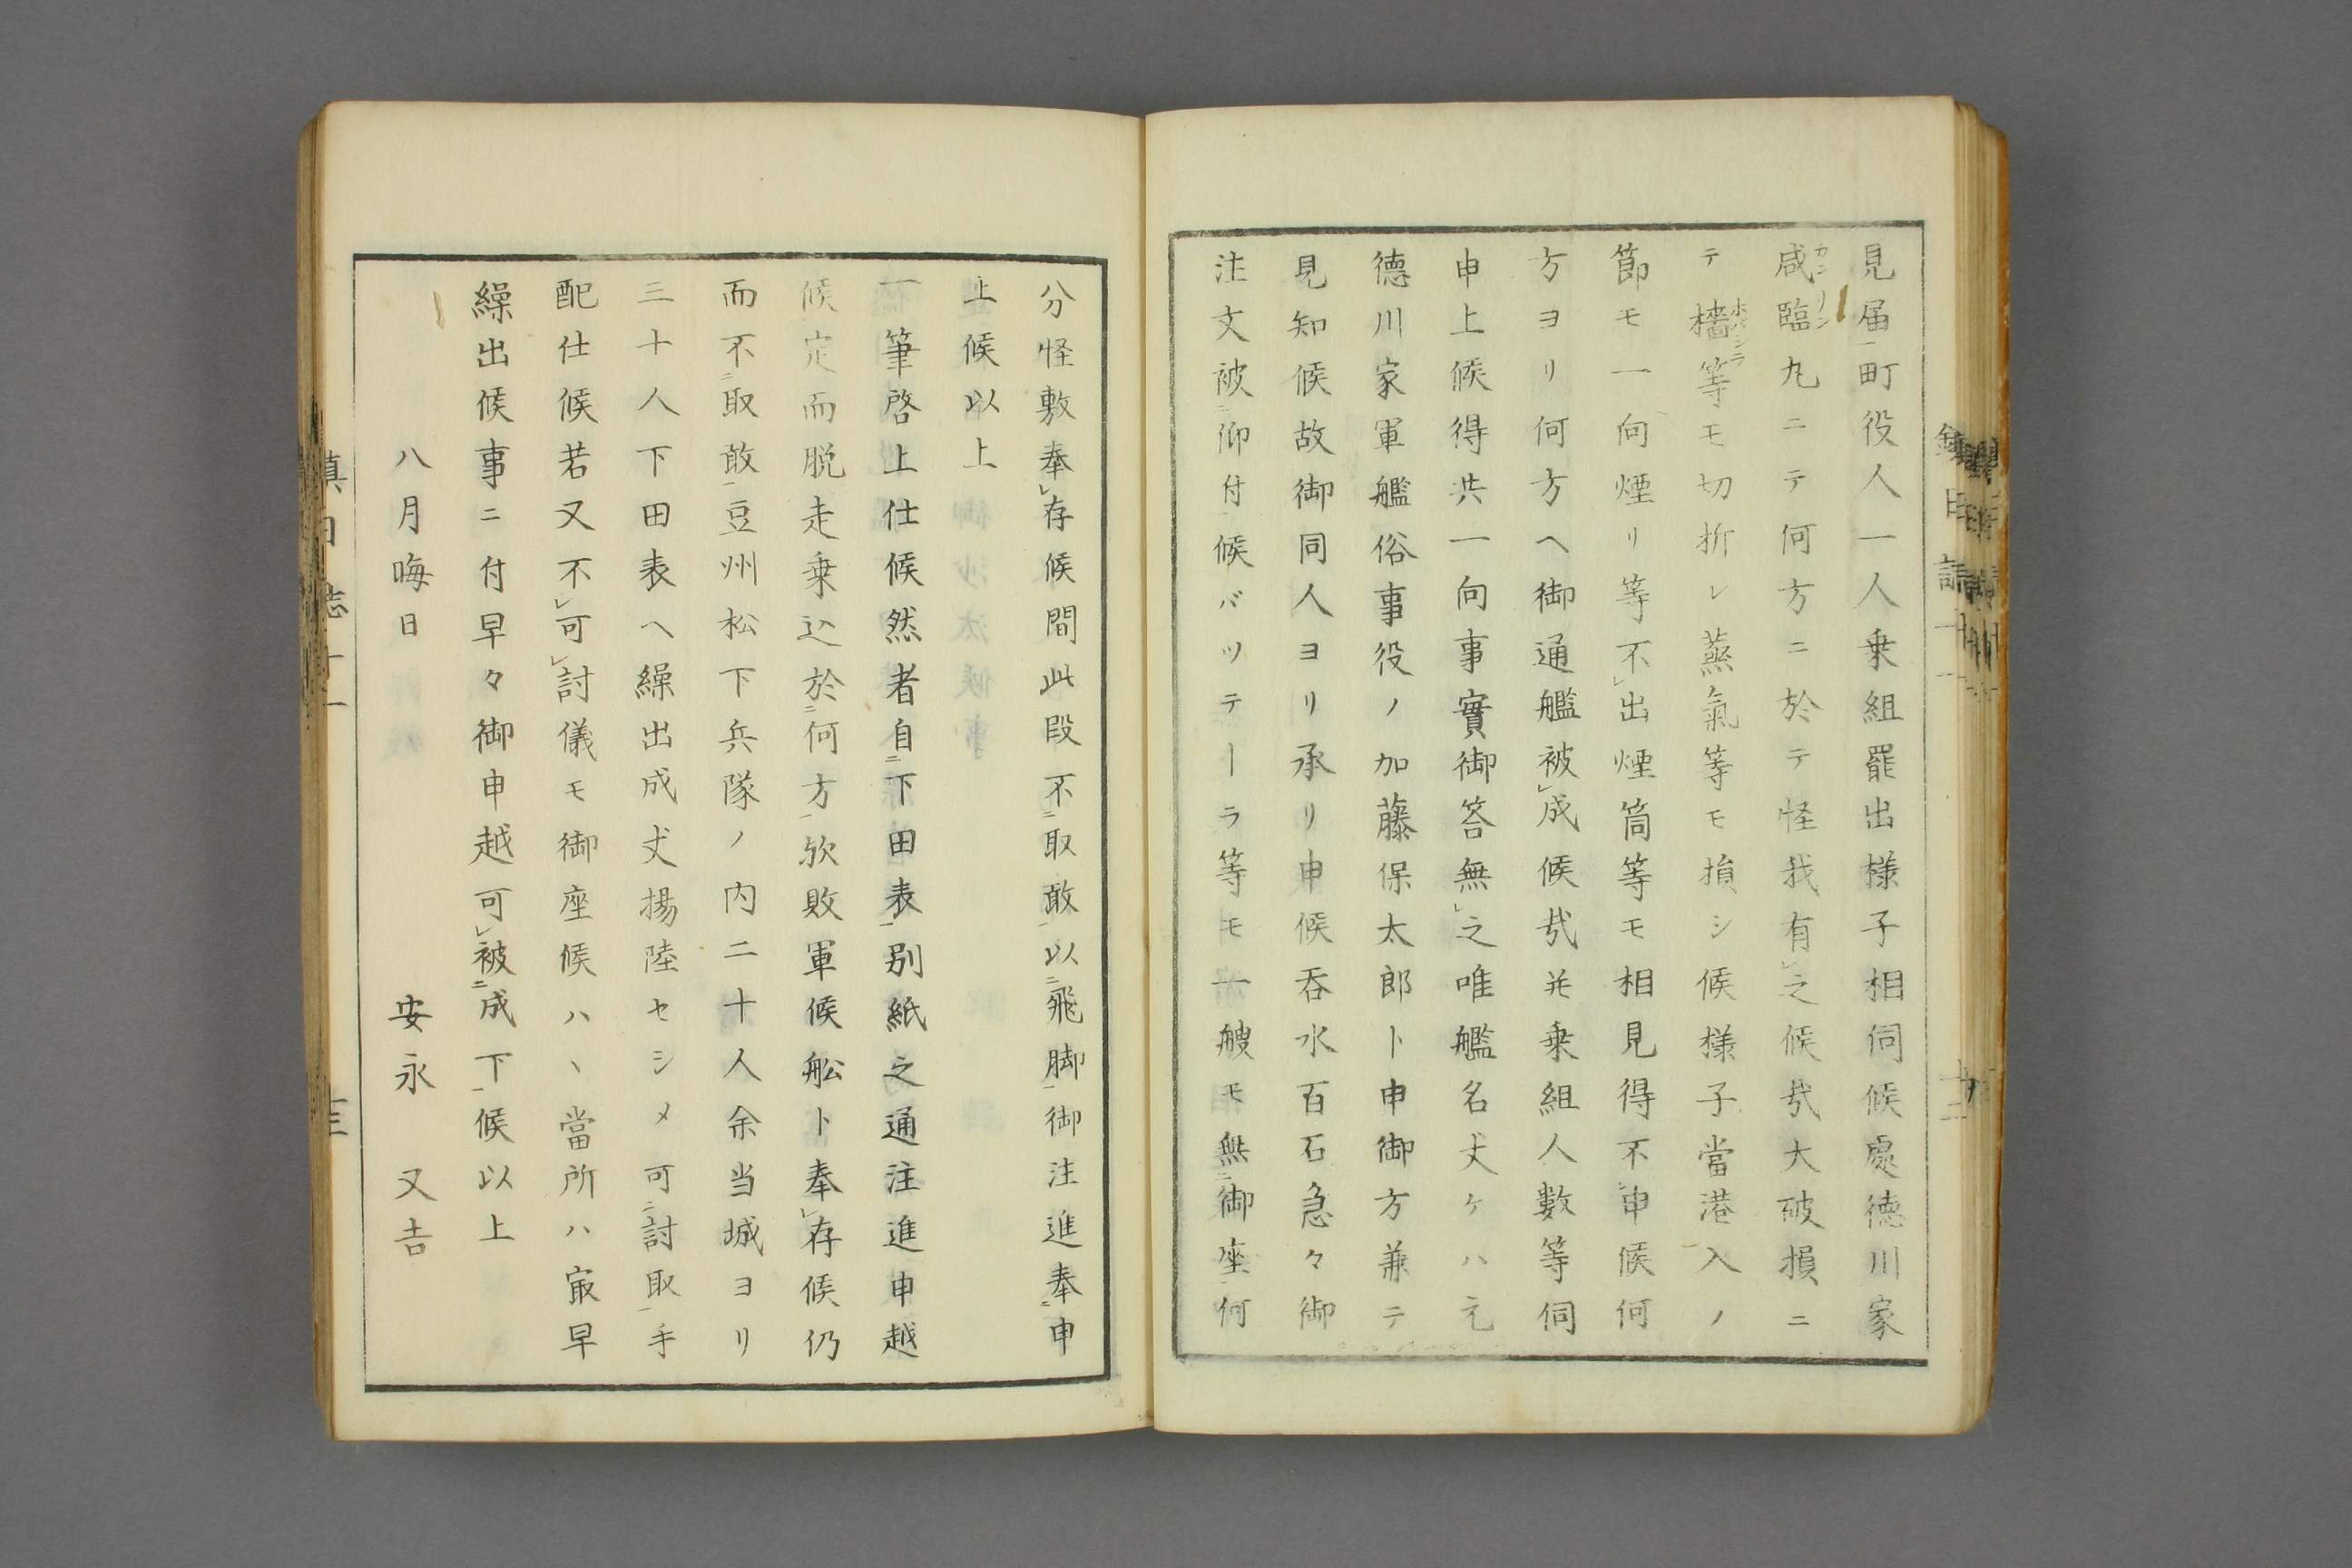 見届町役人一人乗組罷出様子相伺候處徳川家
咸臨丸ニテ何方ニ於テ怪我有之候哉大破損ニ
カンリン
テ檣等モ切折レ蒸氣等モ損シ候様子當港入ノ
ホバシラ
節モ一向煙リ等不出煙筒等モ相見得不申候何
方ヨリ何方ヘ御通艦被成候哉并乗組人數等伺
申上候得共一向事實御答無之唯艦名丈ケハ元
德川家軍艦俗事役ノ加藤保太郎ト申御方兼テ
見知候故御同人ヨリ承リ申候呑水百石急々御
注文被仰付候バツテーラ等モ一艘モ無御座何
分怪敷奉存候間此段不取敢以飛脚御注進奉申
上候以上
一筆啓上仕候然者自下田表別紙之通注進申越
候定而脱走乗込於何方欤敗軍候舩ト奉存候仍
而不取敢豆州松下兵隊ノ内二十人余当城ヨリ
三十人下田表ヘ繰出成丈揚陸セシメ可討取手
配仕候若又不可討儀モ御座候ハヽ當所ハ㝡早
繰出候事ニ付早々御申越可被成下候以上
八月晦日　安永　又吉